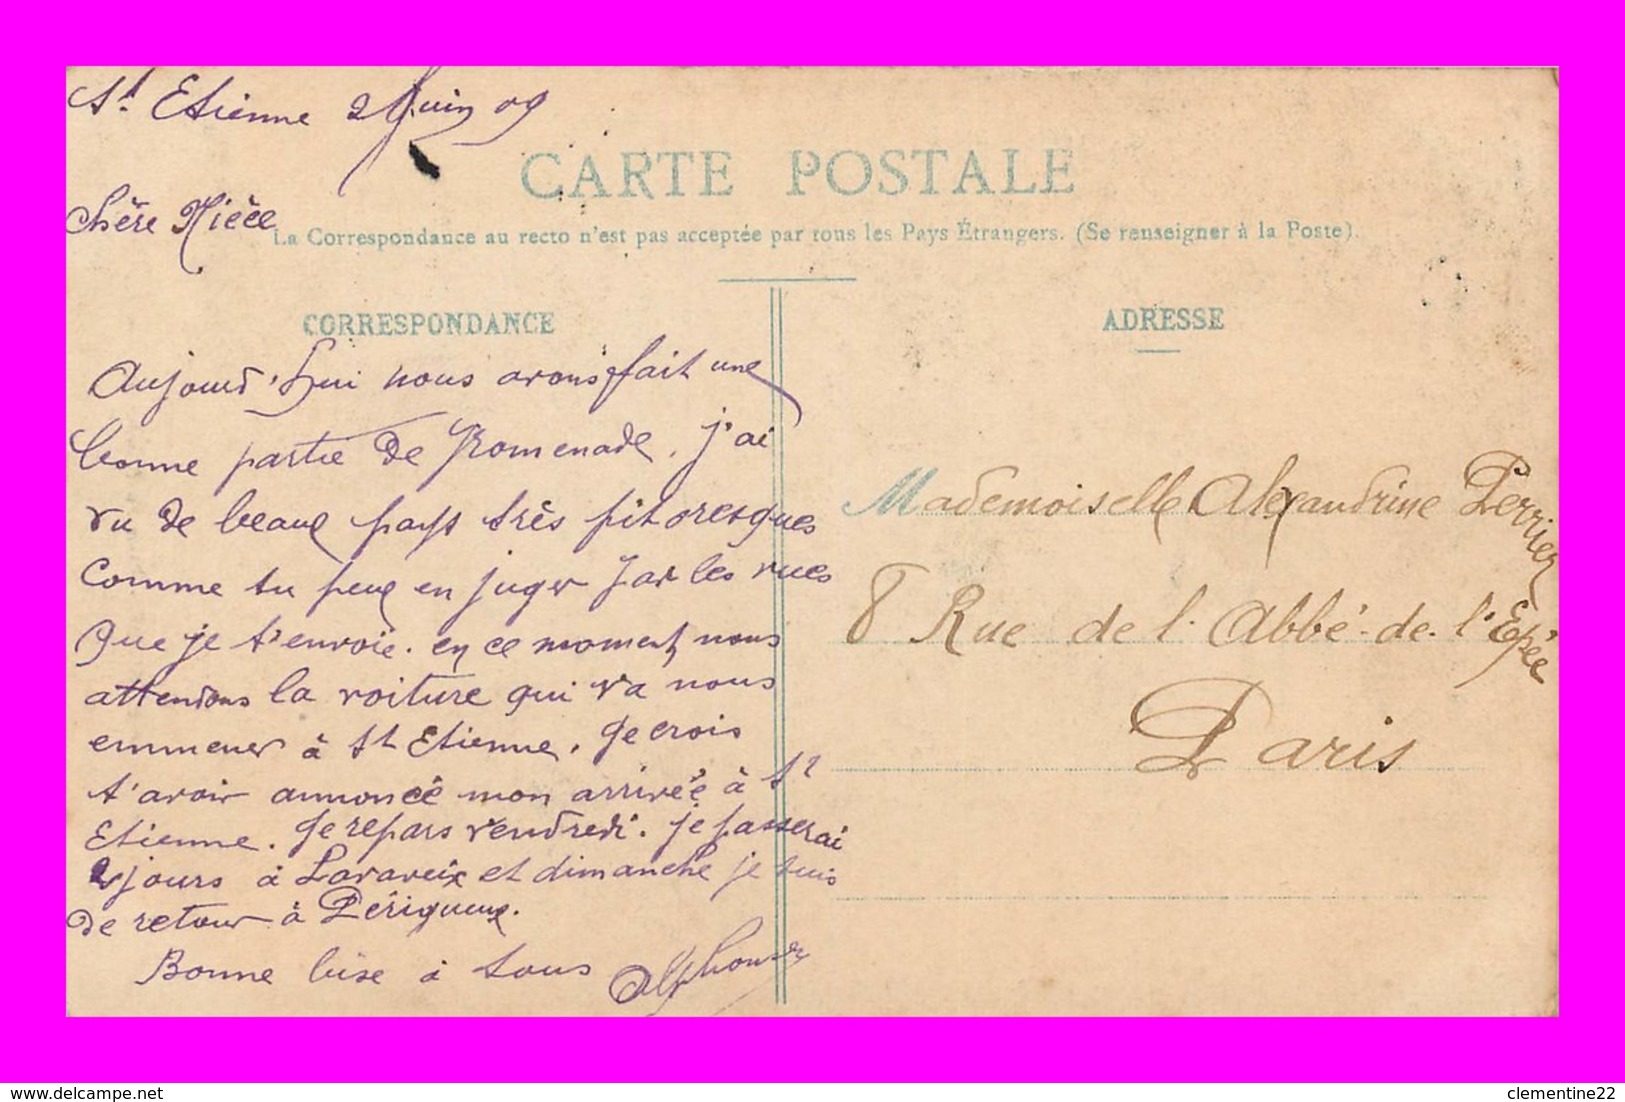 St Etienne 2 Juin 09
CARTE POSTALE
Chère Nièce
La Correspondance au recto n'est pas acceptée par tous les Pays Étrangers. (Se renseigner à la Poste).
CORRESPONDANCE
Aujourd'hui nous avons fait une
bonne partie de Promenade, j'ai
vu de beaux pays très pitoresques
comme tu peux en juger par les vues
que je t'envoie. en ce moment nous
attendons la voiture qui va nous
emmener à St Etienne. Je crois
t'avoir annoncée mon arrivée à St
Etienne. Je repars vendredi. je passerai
2 jours à Lavaveix et dimanche je suis
de retour à Périgueux.
Bonne bise à tous Alphonse
ADRESSE
Mademoiselle Alexandrine Perrier
8 Rue de l'Abbé-de-l'Epée
Paris
delcampe.net
clementine22